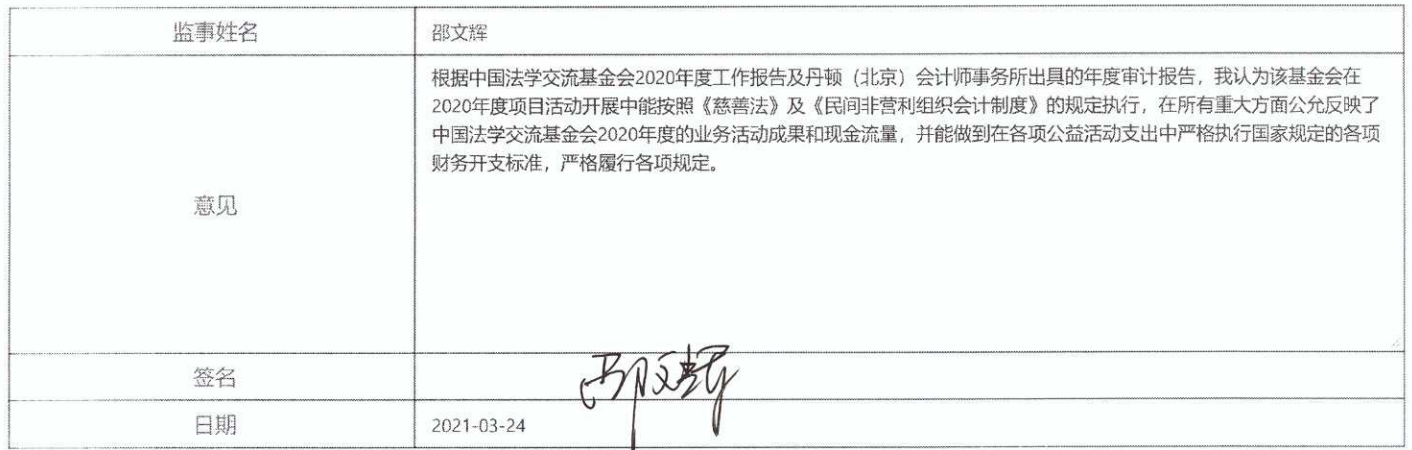 监事姓名
邵文辉
意见
根据中国法学交流基金会2020年度工作报告及丹顿（北京）会计师事务所出具的年度审计报告，我认为该基金会在
2020年度项目活动开展中能按照《慈善法》及《民间非营利组织会计制度》的规定执行，在所有重大方面公允反映了
中国法学交流基金会2020年度的业务活动成果和现金流量，并能做到在各项公益活动支出中严格执行国家规定的各项
财务开支标准，严格履行各项规定。
签名
邵文辉
日期
2021-03-24